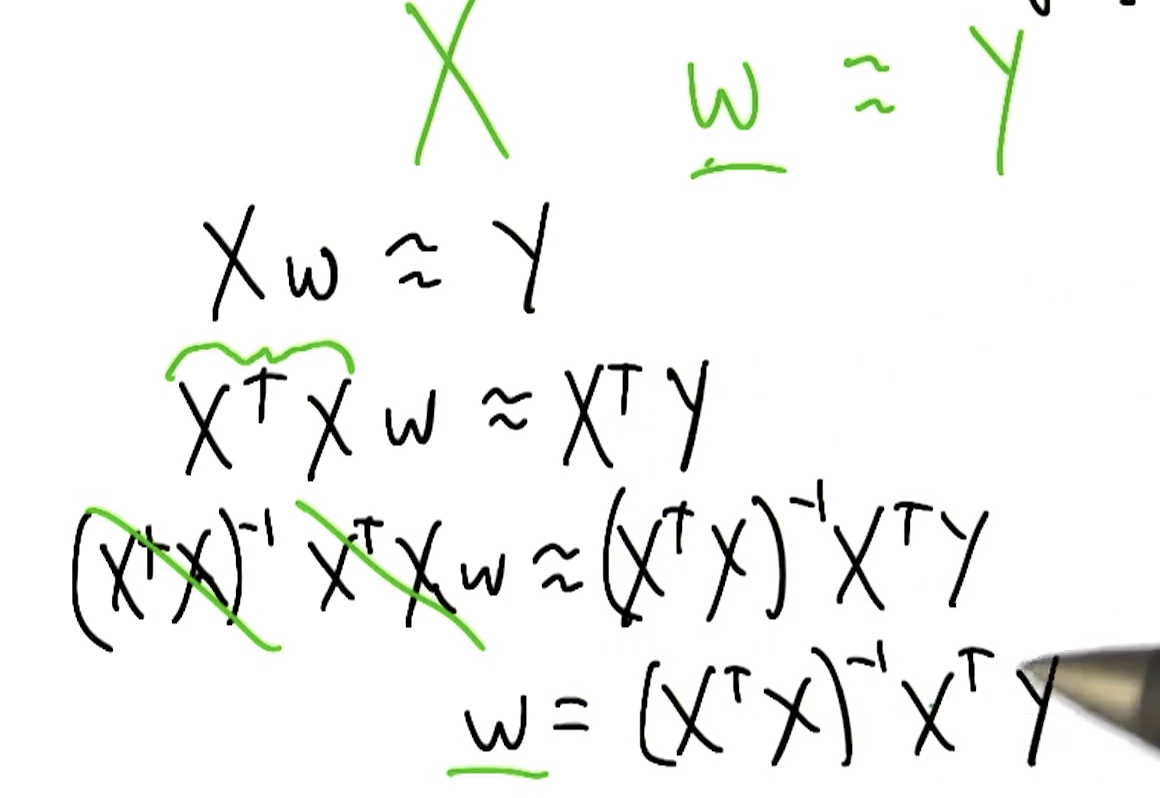 X w ≈ Y
Xw ≈ Y
XᵀX w ≈ XᵀY
(XᵀX)⁻¹ XᵀX w ≈ (XᵀX)⁻¹XᵀY
w = (XᵀX)⁻¹XᵀY